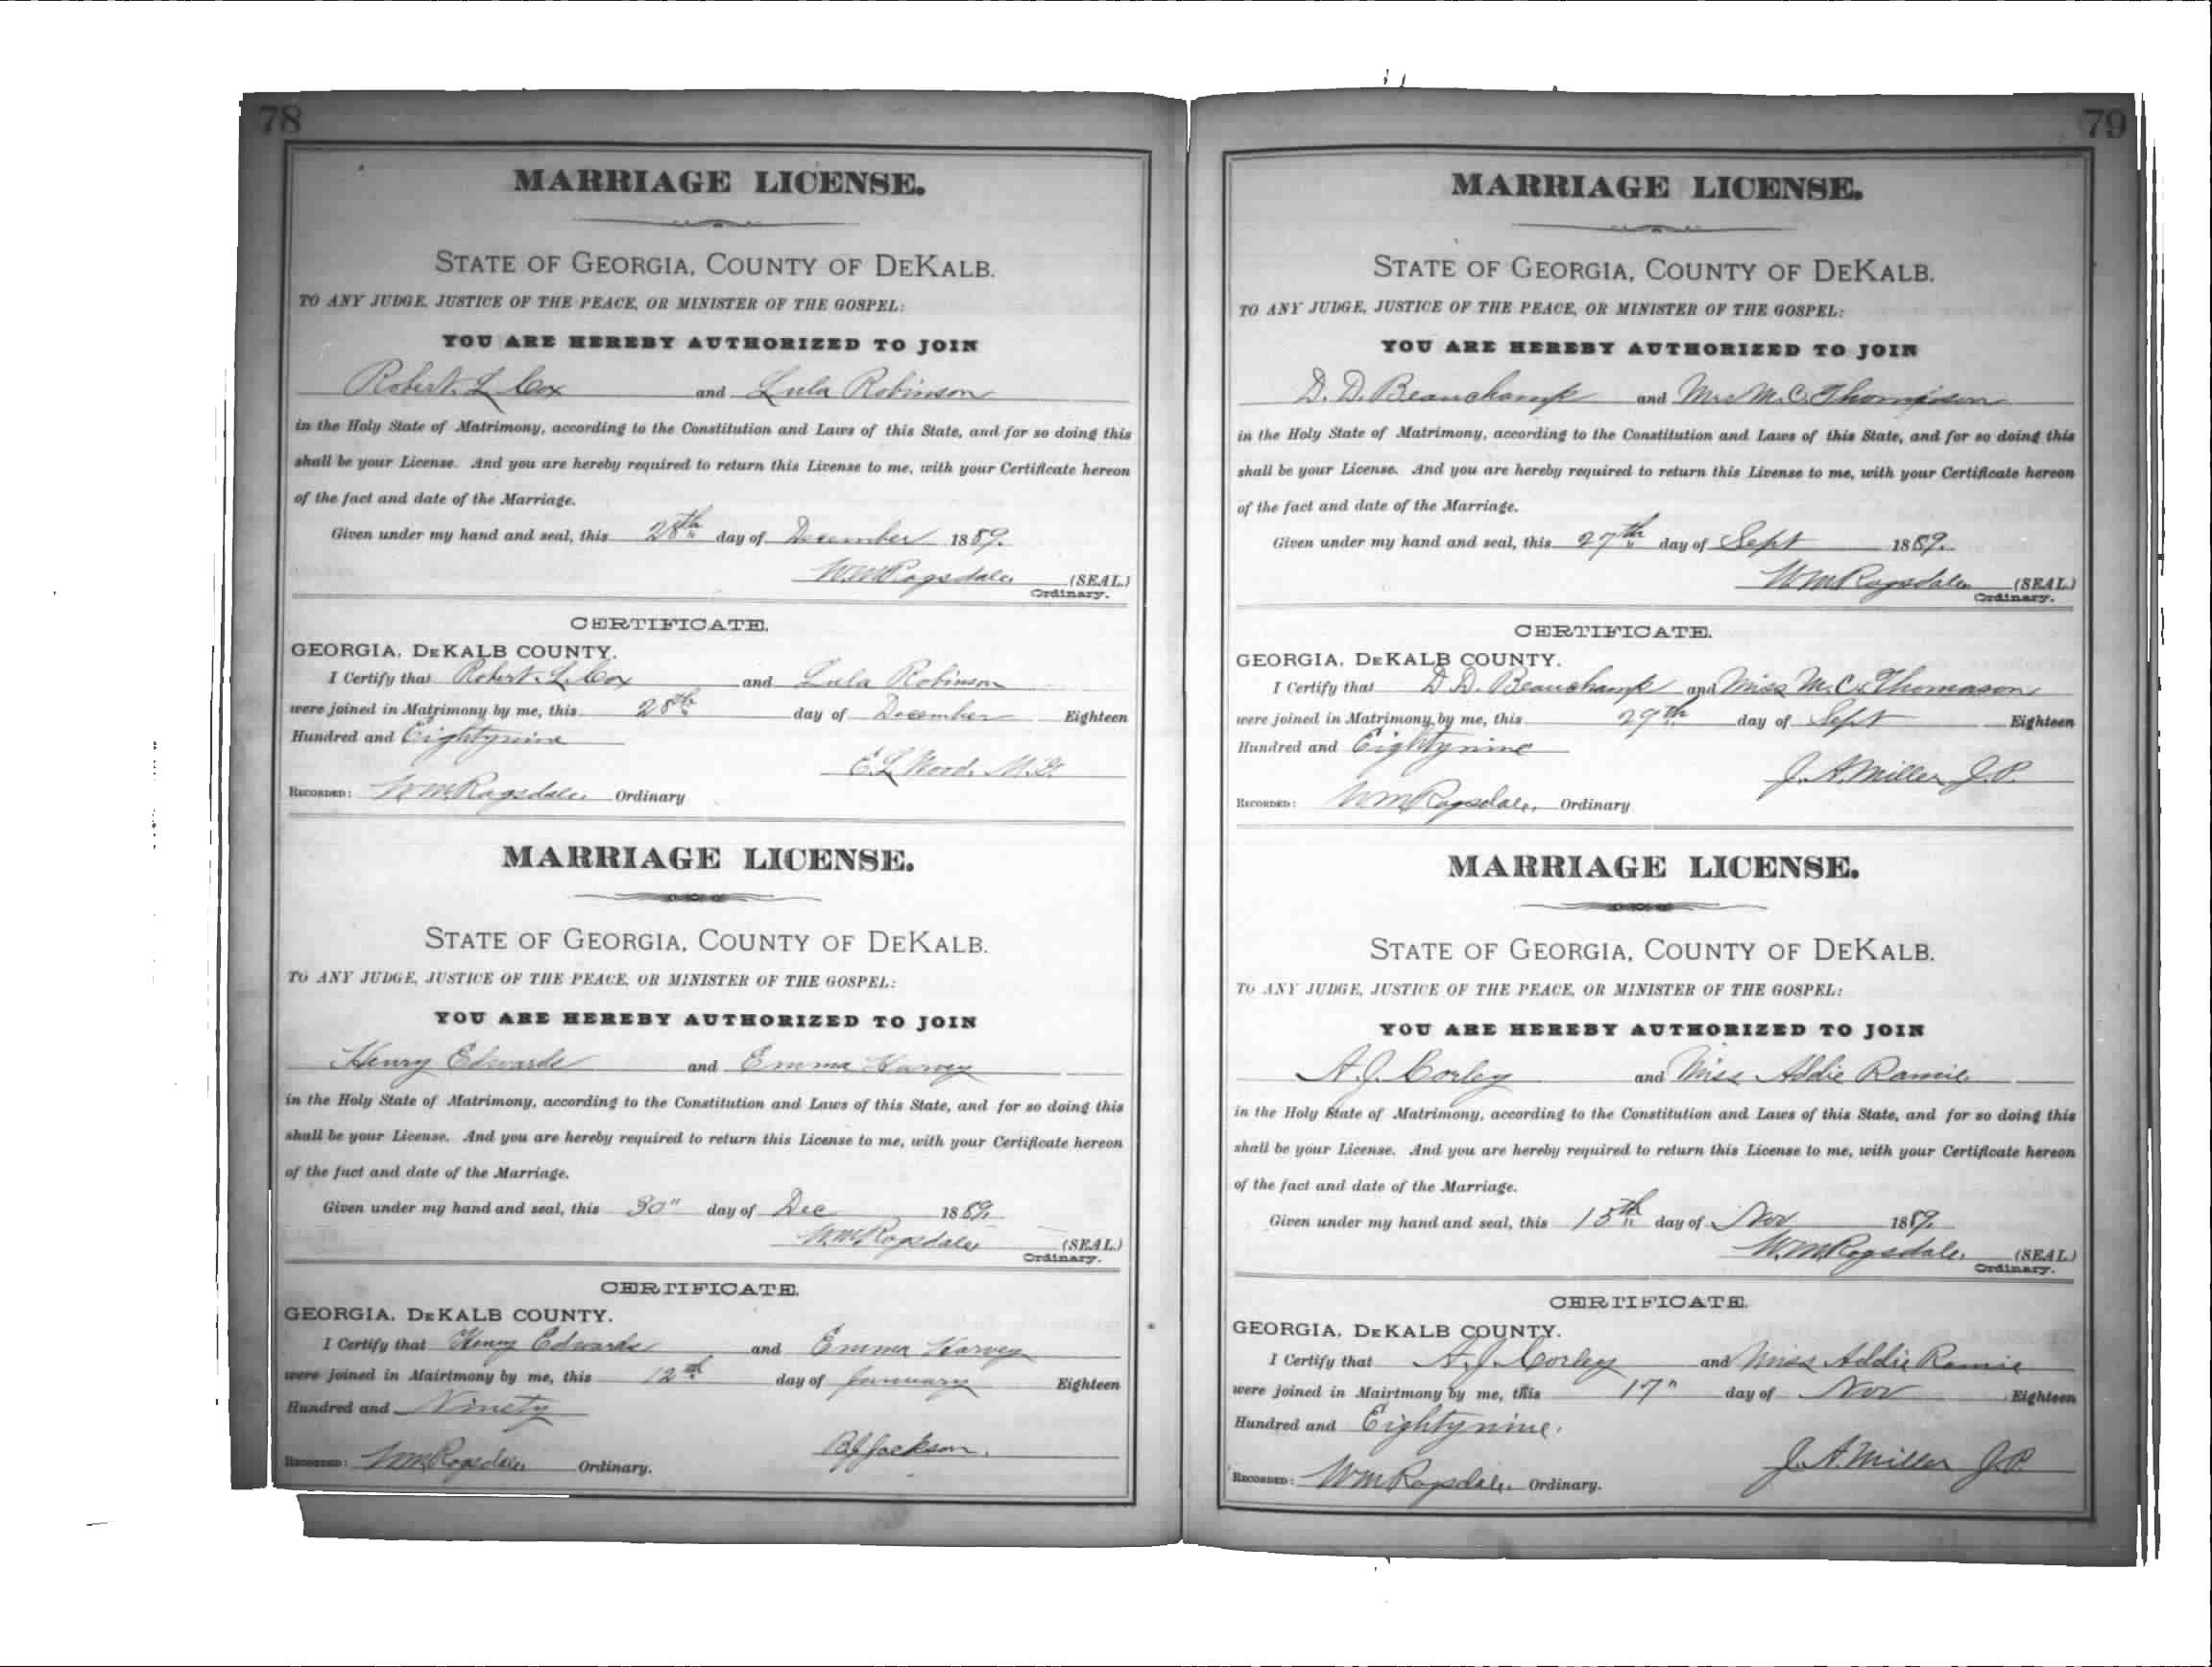 78
MARRIAGE LICENSE.
STATE OF GEORGIA, COUNTY OF DEKALB.
TO ANY JUDGE, JUSTICE OF THE PEACE, OR MINISTER OF THE GOSPEL:
YOU ARE HEREBY AUTHORIZED TO JOIN
Robert. L. Cox and Lula Robinson
in the Holy State of Matrimony, according to the Constitution and Laws of this State, and for so doing this
shall be your License. And you are hereby required to return this License to me, with your Certificate hereon
of the fact and date of the Marriage.
Given under my hand and seal, this 28th day of December 1889.
W.M.Ragsdale (SEAL)
Ordinary.
CERTIFICATE.
GEORGIA, DEKALB COUNTY.
I Certify that Robert. L. Cox and Lula Robinson
were joined in Matrimony by me, this 28th day of December Eighteen
Hundred and Eightynine
E.L. Wood, M.G.
RECORDED: W.M.Ragsdale, Ordinary
MARRIAGE LICENSE.
STATE OF GEORGIA, COUNTY OF DEKALB.
TO ANY JUDGE, JUSTICE OF THE PEACE, OR MINISTER OF THE GOSPEL:
YOU ARE HEREBY AUTHORIZED TO JOIN
Henry Edwards and Emma Harvey
in the Holy State of Matrimony, according to the Constitution and Laws of this State, and for so doing this
shall be your License. And you are hereby required to return this License to me, with your Certificate hereon
of the fact and date of the Marriage.
Given under my hand and seal, this 30" day of Dec 1889.
W.M.Ragsdale (SEAL)
Ordinary.
CERTIFICATE.
GEORGIA, DEKALB COUNTY.
I Certify that Henry Edwards and Emma Harvey
were joined in Mairtmony by me, this 12th day of January Eighteen
Hundred and Ninety
B.J. Jackson.
RECORDED: W.M.Ragsdale Ordinary.
79
MARRIAGE LICENSE.
STATE OF GEORGIA, COUNTY OF DEKALB.
TO ANY JUDGE, JUSTICE OF THE PEACE, OR MINISTER OF THE GOSPEL:
YOU ARE HEREBY AUTHORIZED TO JOIN
D. D. Beauchamp and Miss M.C. Thomason
in the Holy State of Matrimony, according to the Constitution and Laws of this State, and for so doing this
shall be your License. And you are hereby required to return this License to me, with your Certificate hereon
of the fact and date of the Marriage.
Given under my hand and seal, this 27th day of Sept 1889.
W.M.Ragsdale (SEAL)
Ordinary.
CERTIFICATE.
GEORGIA, DEKALB COUNTY.
I Certify that D D. Beauchamp and Miss M.C. Thomason
were joined in Matrimony by me, this 29th day of Sept Eighteen
Hundred and Eightynine
J. A. Miller J.P.
RECORDED: W.M.Ragsdale, Ordinary
MARRIAGE LICENSE.
STATE OF GEORGIA, COUNTY OF DEKALB.
TO ANY JUDGE, JUSTICE OF THE PEACE, OR MINISTER OF THE GOSPEL:
YOU ARE HEREBY AUTHORIZED TO JOIN
A. J. Corley and Miss Addie Ramie
in the Holy State of Matrimony, according to the Constitution and Laws of this State, and for so doing this
shall be your License. And you are hereby required to return this License to me, with your Certificate hereon
of the fact and date of the Marriage.
Given under my hand and seal, this 15th day of Nov 1889.
W.M.Ragsdale. (SEAL)
Ordinary.
CERTIFICATE.
GEORGIA, DEKALB COUNTY.
I Certify that A. J. Corley and Miss Addie Ramie
were joined in Mairtmony by me, this 17" day of Nov Eighteen
Hundred and Eightynine.
J. A. Miller J.P.
RECORDED: W.M.Ragsdale. Ordinary.